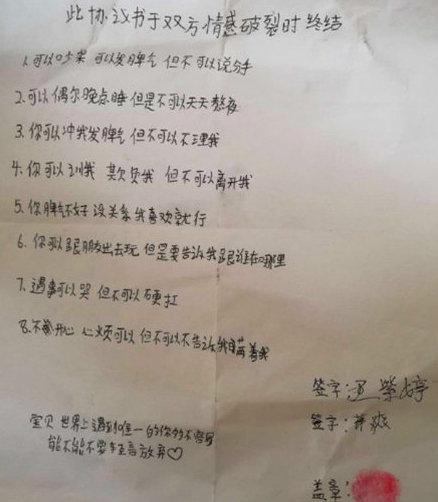 此协议书于双方情感破裂时终结
1.可以吵架 可以发脾气 但不可以说分手
2.可以偶尔晚点睡 但是不可以天天熬夜
3.你可以冲我发脾气 但不可以不理我
4.你可以训我 欺负我 但不可以离开我
5.你脾气不好 没关系 我喜欢就行
6.你可以跟朋友出去玩 但是要告诉我跟谁在哪里
7.遇事可以哭 但不可以硬扛
8.不开心 心烦可以 但不可以不告诉我瞒着我
宝贝 世界上遇到唯一的你多不容易
能不能不要轻言放弃♡
签字:
签字:
盖章: